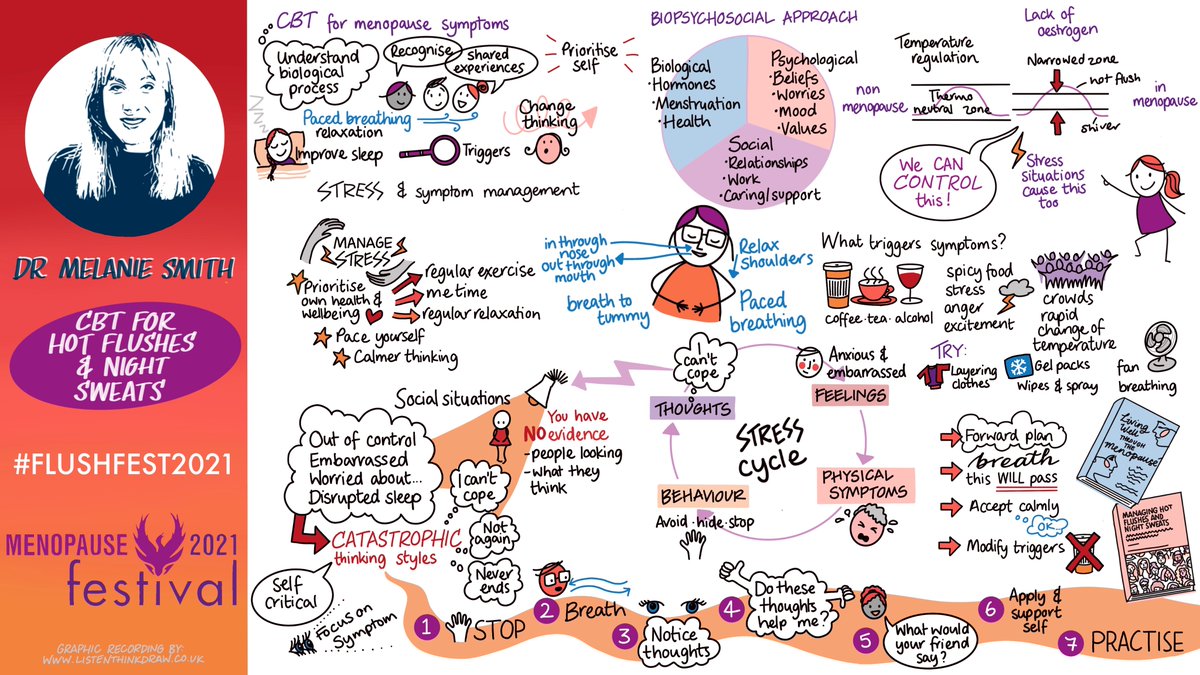 DR MELANIE SMITH
CBT FOR
HOT FLUSHES
& NIGHT
SWEATS
#FLUSHFEST2021
MENOPAUSE 2021
festival
GRAPHIC RECORDING BY:
WWW.LISTENTHINKDRAW.CO.UK
CBT for menopause symptoms
Understand
biological
process
Recognise
shared
experiences
Prioritise
self
Paced breathing
relaxation
Change
thinking
Improve sleep
Triggers
STRESS & symptom management
BIOPSYCHOSOCIAL APPROACH
Biological
• Hormones
• Menstruation
• Health
Psychological
• Beliefs
• Worries
• Mood
• Values
Social
• Relationships
• Work
• Caring/support
Lack of
oestrogen
Temperature
regulation
Narrowed zone
hot flush
non
menopause
Thermo
neutral zone
in
menopause
shiver
We CAN
CONTROL
this!
Stress
situations
cause this
too
MANAGE
STRESS
Prioritise
own health &
wellbeing
regular exercise
me time
regular relaxation
Pace yourself
Calmer thinking
in through
nose
out through
mouth
breath to
tummy
Relax
Shoulders
Paced
breathing
What triggers symptoms?
coffee · tea · alcohol
spicy food
stress
anger
excitement
crowds
rapid
change of
temperature
TRY:
Layering
clothes
Gel packs
Wipes & spray
fan
breathing
Social situations
Out of control
Embarrassed
Worried about...
Disrupted sleep
You have
NO evidence
- people looking
- what they
think
CATASTROPHIC
thinking styles
I can't
cope
Not
again
Never
ends
Self
Critical
Focus on
Symptom
STRESS
cycle
I
can't
cope
THOUGHTS
Anxious &
embarrassed
FEELINGS
PHYSICAL
SYMPTOMS
BEHAVIOUR
Avoid · hide · stop
Forward plan
breath
this WILL pass
Accept calmly
OK
Modify triggers
Living
Well
THROUGH THE
Menopause
MANAGING HOT
FLUSHES AND
NIGHT SWEATS
1 STOP
2 Breath
3 Notice
thoughts
4 Do these
thoughts
help me?
5 What would
your friend
say?
6 Apply &
support
self
7 PRACTISE